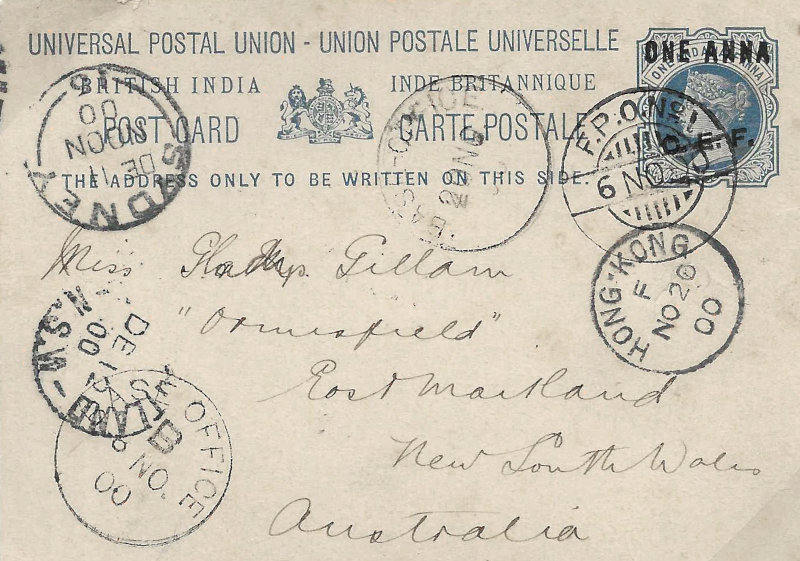 UNIVERSAL POSTAL UNION - UNION POSTALE UNIVERSELLE
BRITISH INDIA INDE BRITANNIQUE
POST CARD CARTE POSTALE
THE ADDRESS ONLY TO BE WRITTEN ON THIS SIDE.
ONE ANNA
C. E. F.
F.P.O. No. 1
6 NO 00
SYDNEY
DE 11
NOON
00
BASE OFFICE
22 NO
HONG-KONG
F
NO 20
00
Miss Gladys Gillam
"Ormesfield"
East Maitland
New South Wales
Australia
MAITLAND
DE 12
00
N.S.W
BASE OFFICE
B
NO
00